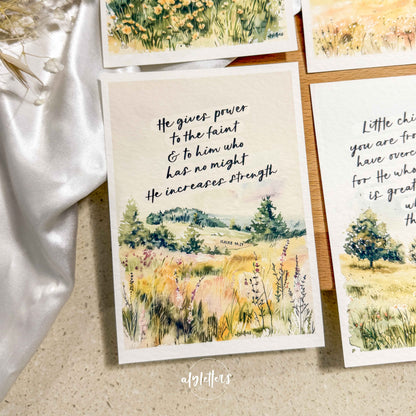 He gives power
to the faint
& to him who
has no might
He increases strength
Little chi
you are fro
have overc
for He who
is grea
th
afyletters